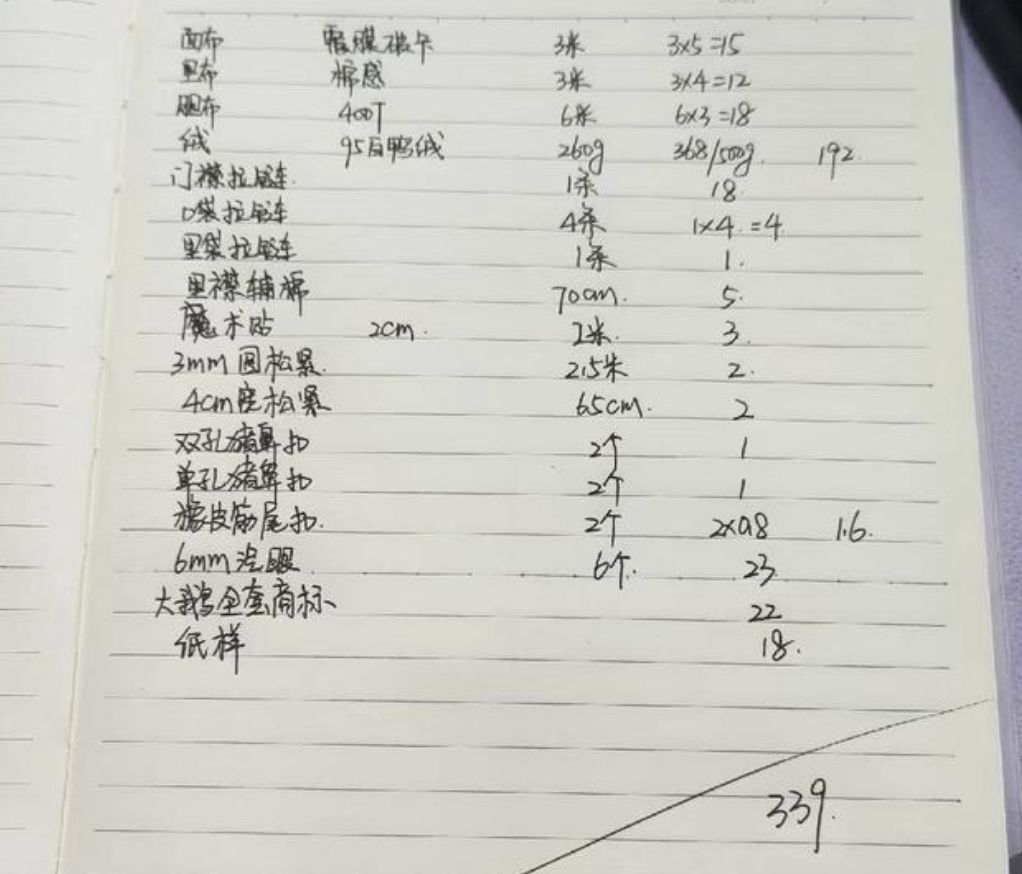 面布 覆膜磁卡 3米 3x5=15
里布 棉感 3米 3x4=12
胆布 400T 6米 6x3=18
绒 95白鸭绒 260g 368/500g. 192
门襟拉链. 1条 18
口袋拉链 4条 1x4.=4
里袋拉链 1条 1.
里襟辅棉 70cm. 5.
魔术贴 2cm. 2米. 3.
3mm圆松紧. 2.5米 2.
4cm宽松紧 65cm. 2
双孔猪鼻扣 2个 1
单孔猪鼻扣 2个 1
橡皮筋尾扣. 2个 2x0.8 1.6.
6mm汽眼 6个. 23
大鹅全套商标 22
纸样 18.
339.